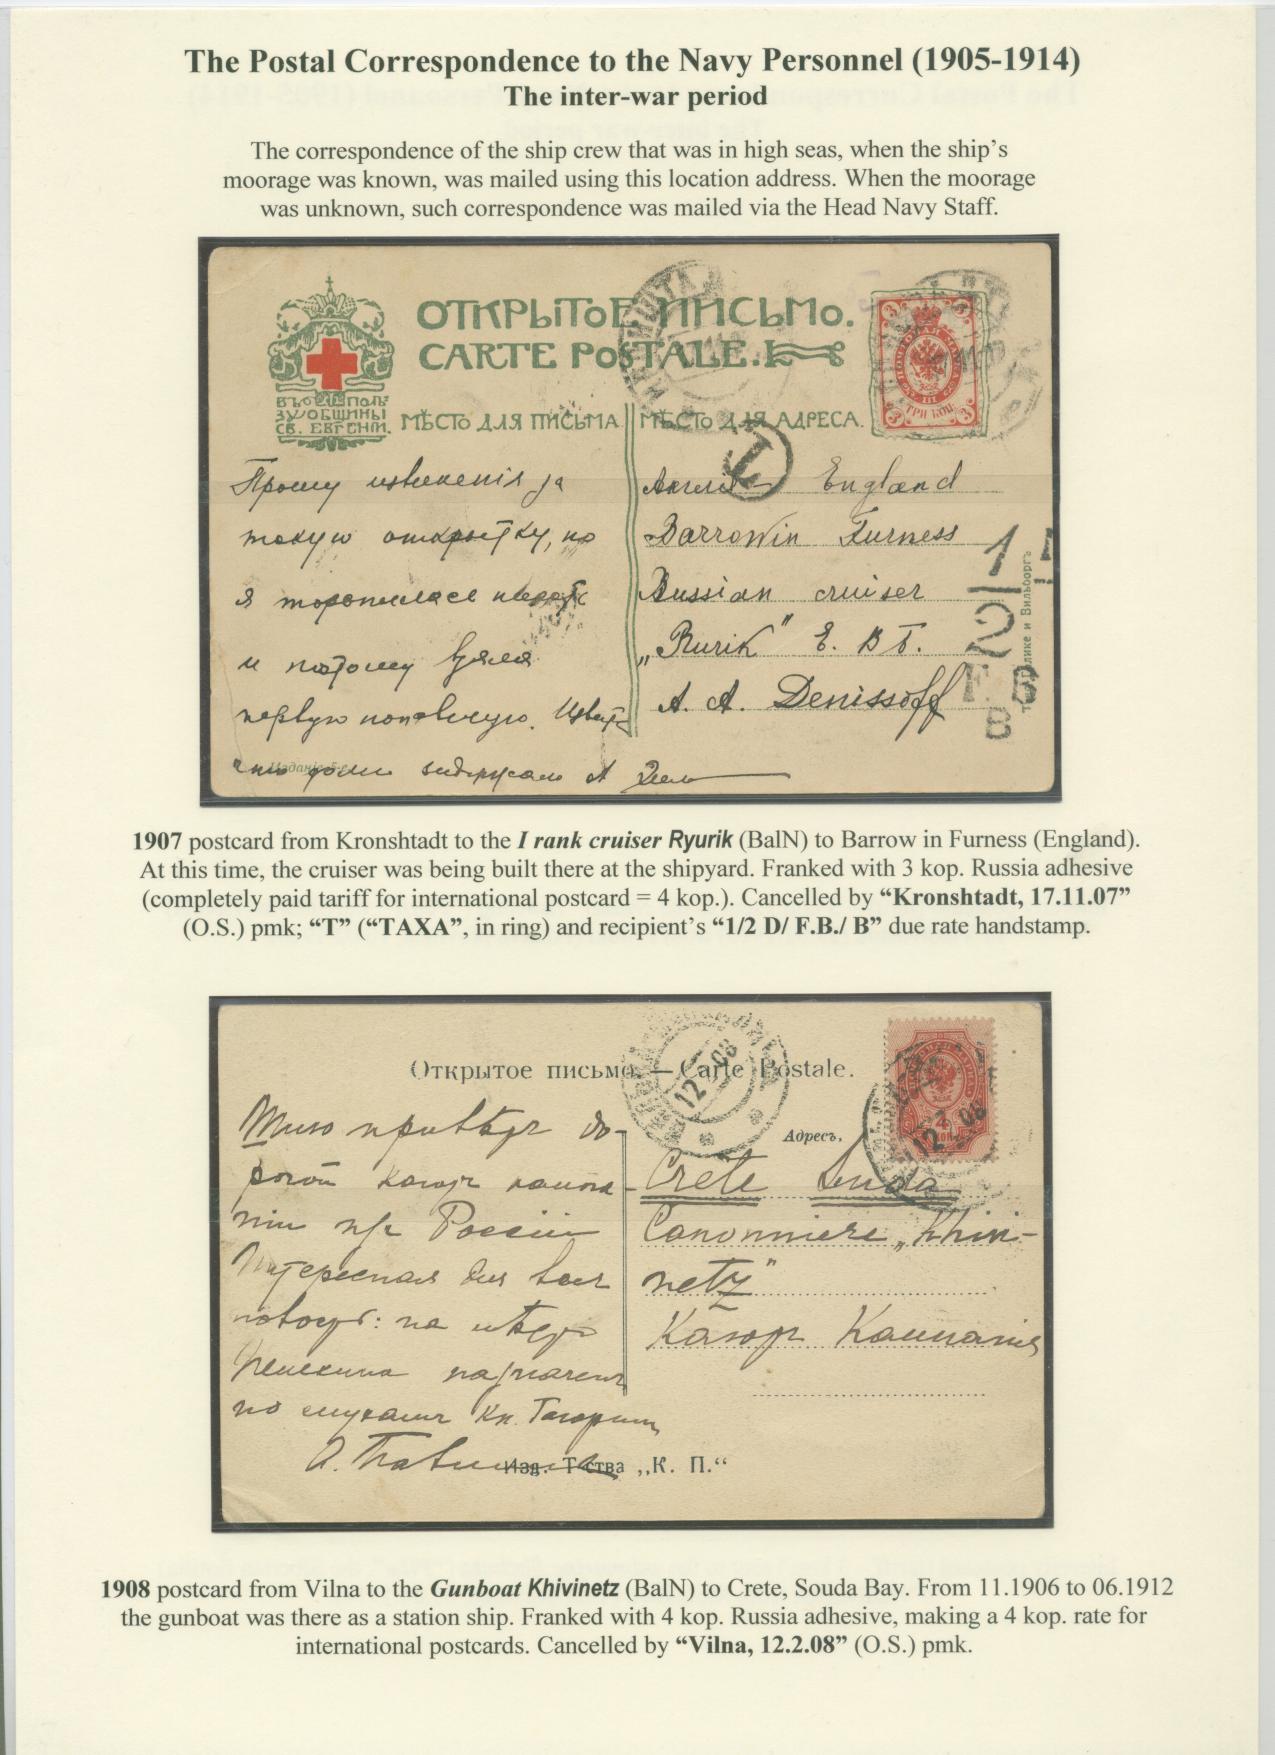 The Postal Correspondence to the Navy Personnel (1905-1914)
The inter-war period
The correspondence of the ship crew that was in high seas, when the ship's
moorage was known, was mailed using this location address. When the moorage
was unknown, such correspondence was mailed via the Head Navy Staff.
ОТКРЫТОЕ ПИСЬМО.
CARTE POSTALE.
ВЪ ПОЛЬ
ЗУ ОБЩИНЫ
СВ. ЕВГЕНІИ.
МѢСТО ДЛЯ ПИСЬМА
МѢСТО ДЛЯ АДРЕСА.
ТРИ КОП.
T
Прошу извиненія за
такую открытку, но
я торопилась
и потому взяла
первую попавшуюся.
Изданіе
Англія England
Barrow in Furness
Russian cruiser
„Rurik" Е. В Б.
A. A. Denissoff
1/2
F. B
B
и Вильборгъ
1907 postcard from Kronshtadt to the I rank cruiser Ryurik (BalN) to Barrow in Furness (England).
At this time, the cruiser was being built there at the shipyard. Franked with 3 kop. Russia adhesive
(completely paid tariff for international postcard = 4 kop.). Cancelled by “Kronshtadt, 17.11.07”
(O.S.) pmk; “T” (“TAXA”, in ring) and recipient's “1/2 D/ F.B./ B” due rate handstamp.
Открытое письмо. — Carte Postale.
12 2 08
12 2 08
Адресъ,
Шлю привѣтъ до-
рогой
Россіи
Интересная для всех
новость: на мѣсто
назначенъ
по слухамъ Кн. Гагаринъ
Crète Suda
Canonniere „Khivi-
netz"
Изд. Т-ства „К. П.“
1908 postcard from Vilna to the Gunboat Khivinetz (BalN) to Crete, Souda Bay. From 11.1906 to 06.1912
the gunboat was there as a station ship. Franked with 4 kop. Russia adhesive, making a 4 kop. rate for
international postcards. Cancelled by “Vilna, 12.2.08” (O.S.) pmk.